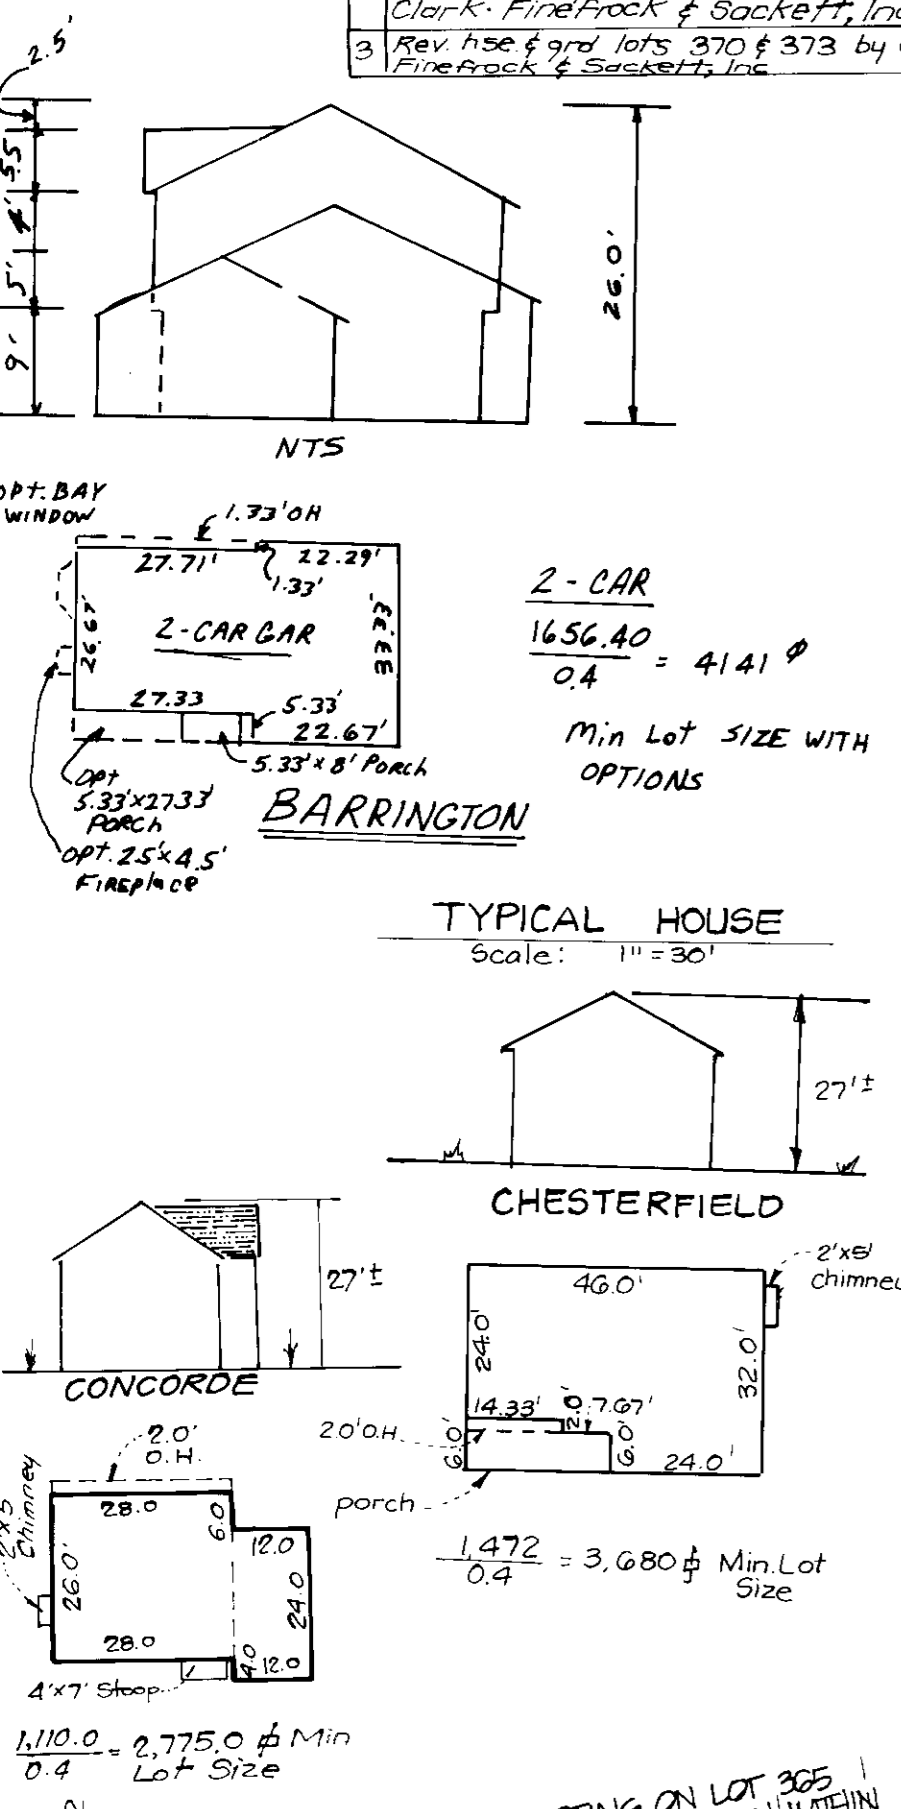 Clark. Finefrock & Sackett, Inc
3 Rev. hse. & grd lots 370 & 373 by
Finefrock & Sackett, Inc
2.5'
5.5
4'
5'
9'
26.0'
NTS
OPT. BAY
WINDOW
1.33' OH
27.71'
22.29'
1.33'
26.67'
2-CAR GAR
33.33'
27.33
5.33'
22.67'
5.33' x 8' PORCH
OPT
5.33' x 27.33'
PORCH
OPT. 2.5' x 4.5'
FIREPLACE
BARRINGTON
2-CAR
1656.40
0.4 = 4141
Min Lot SIZE WITH
OPTIONS
TYPICAL HOUSE
Scale: 1" = 30'
27'±
CHESTERFIELD
27'±
CONCORDE
46.0'
2'x5'
Chimney
24.0'
32.0'
14.33'
2.0'
7.67'
2.0' O.H.
6.0'
6.0'
24.0'
porch
1,472
0.4 = 3,680 Min. Lot
Size
2.0'
O.H.
2'x5'
Chimney
28.0
6.0
12.0
26.0'
24.0
28.0
4.0
12.0
4'x7' Stoop
1,110.0
0.4 = 2,775.0 Min
Lot Size
ON LOT 365